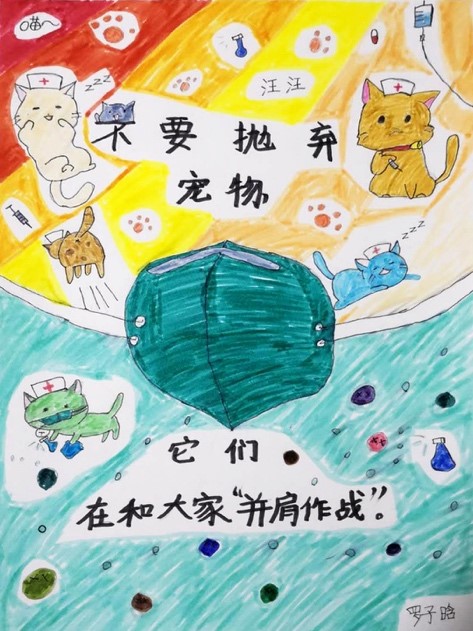 喵~
汪汪
zzz
不要抛弃
宠物
zzz
它们
在和大家“并肩作战”。
罗子晗